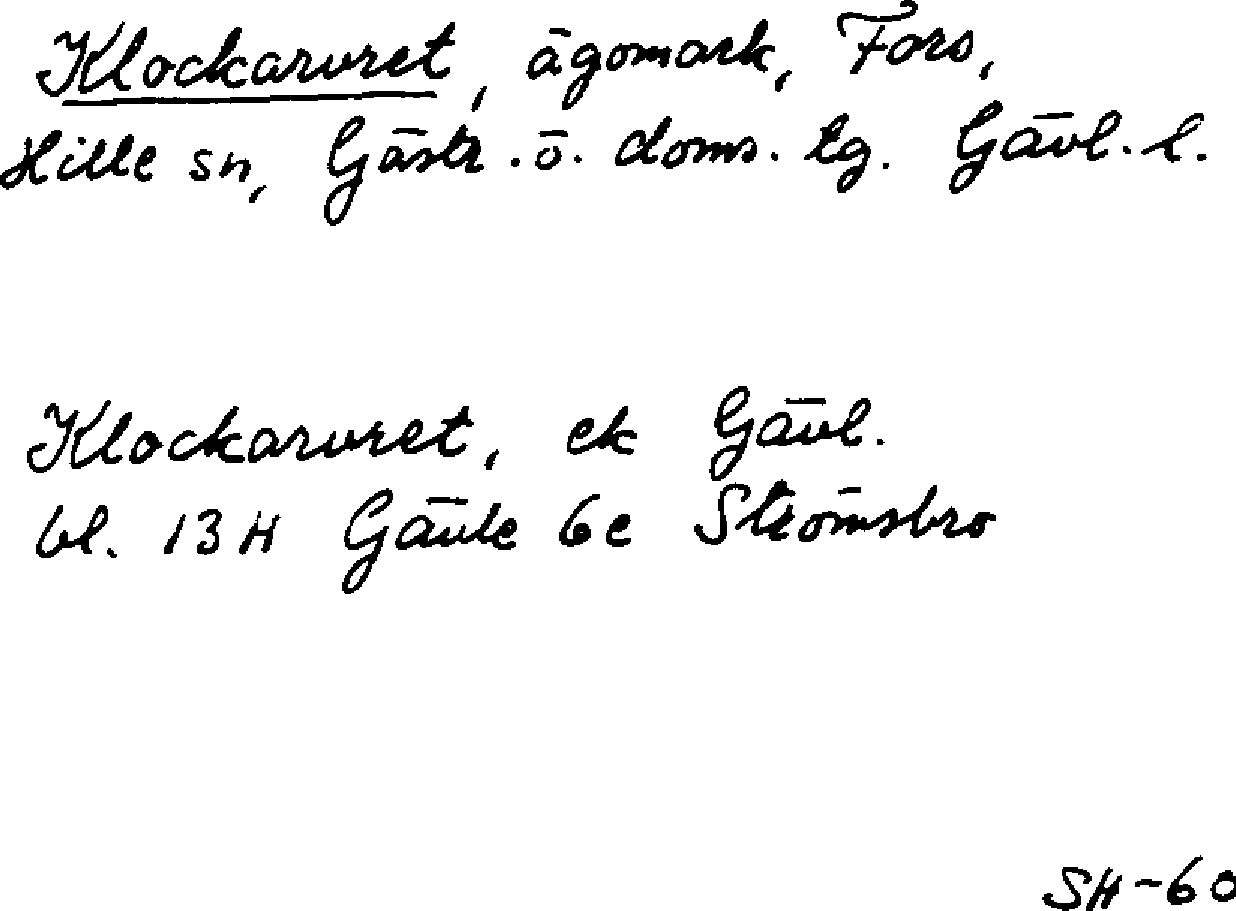 Klockarvret, ägomark, Fors,
Hille sn, Gästr. ö. doms. tg. Gävl. l.
Klockarvret, ek Gävl.
bl. 13H Gävle 6c Strömsbro
SH-60